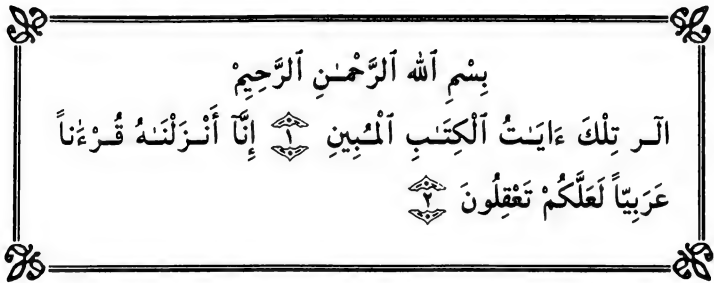 بِسْمِ ٱللهِ ٱلرَّحْمَـٰنِ ٱلرَّحِيمِ
الٓـر تِلْكَ ءَايَـٰتُ ٱلْكِتَـٰبِ ٱلْمُبِينِ ١ إِنَّآ أَنْـزَلْنَـٰهُ قُـرْءَٰناً
عَرَبِيّاً لَعَلَّكُمْ تَعْقِلُونَ ٢